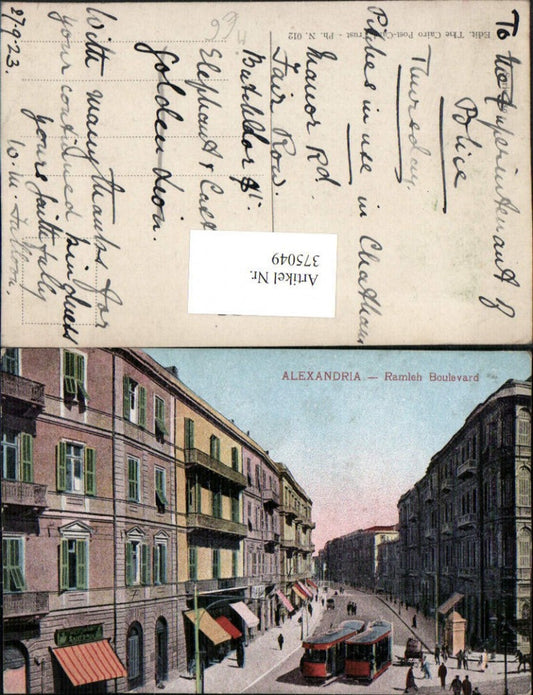 Edit. The Cairo Post-Card Trust - Ph. N. 012
To the Superintendent of
Police
Thursday,
Pitches in use in Chatham
Manor Rd.
Fair Row.
Batchelor St:
Elephant & Castle
Golden Lion.
With many thanks for
your continued kindness
yours faithfully
27-9-23.
Artikel Nr.
375049
ALEXANDRIA. — Ramleh Boulevard